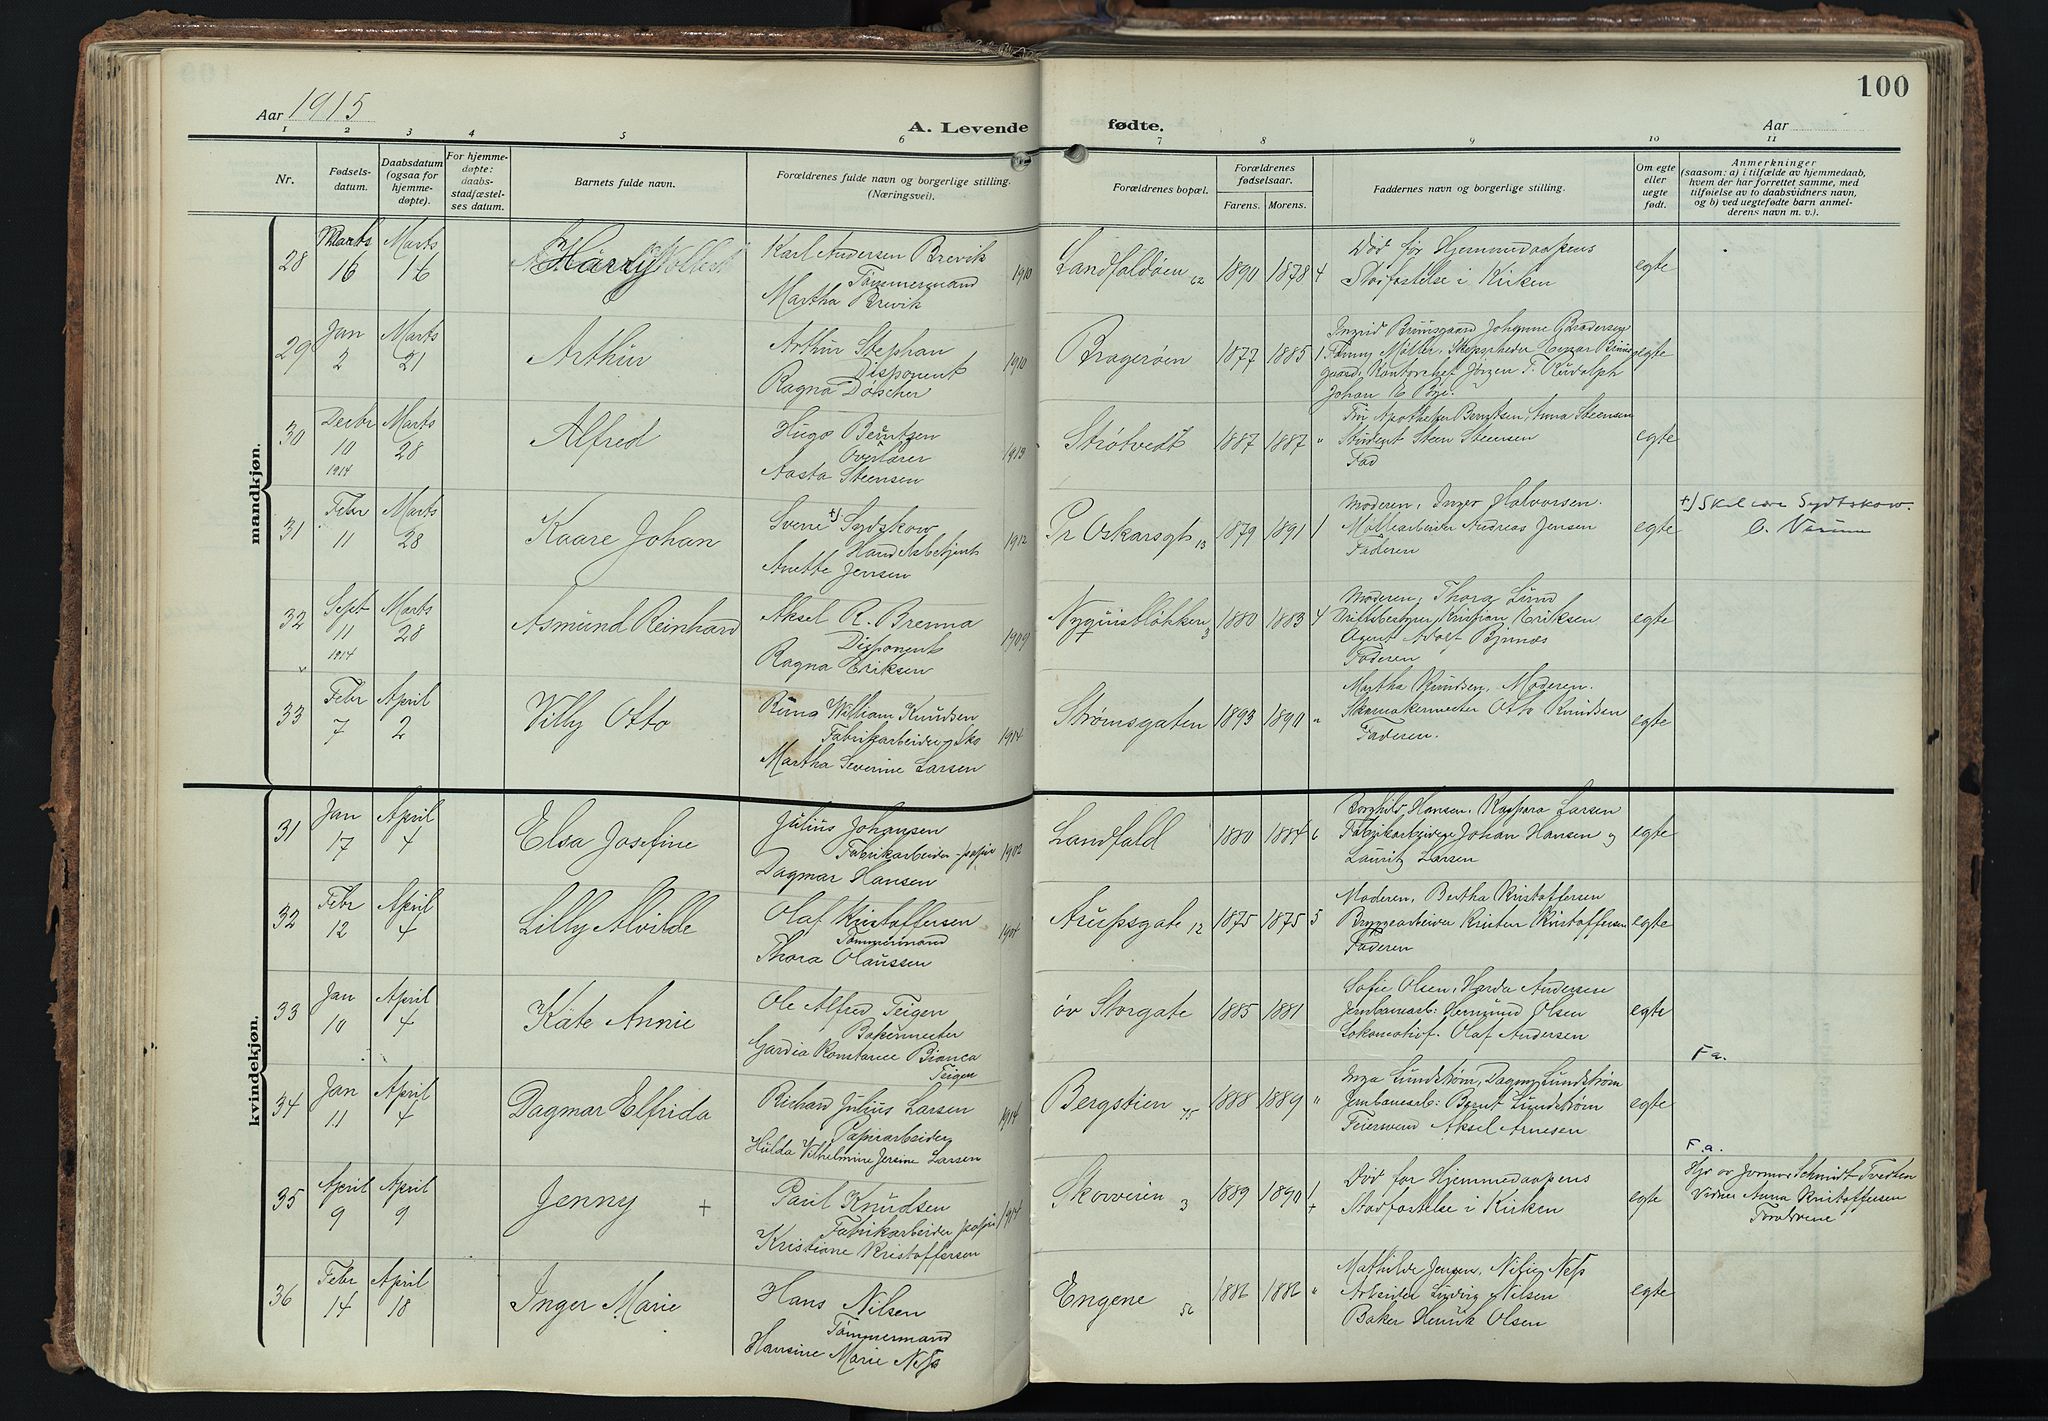 100
Aar 1915
A. Levende fødte.
Aar
1 2 3 4 5 6 7 8 9 10 11
Nr.
Fødsels-
datum.
Daabsdatum
(ogsaa for
hjemme-
døpte).
For hjemme-
døpte:
daabs-
stadfæstel-
ses datum.
Barnets fulde navn.
Forældrenes fulde navn og borgerlige stilling.
(Næringsvei).
Forældrenes bopæl.
Forældrenes
fødselsaar.
Farens. Morens.
Faddernes navn og borgerlige stilling.
Om egte
eller
uegte
født.
Anmerkninger
(saasom: a) i tilfælde av hjemmedaab,
hvem der har forrettet samme, med
tilføielse av to daabsvidners navn,
og b) ved uegtefødte barn anmel-
derens navn m. v.).
mandkjøn.
28 Marts 16 Marts 16
Harry
Karl Andersen Brevik
Tømmermand
Martha Brevik
1910
Landfaldøen 62 1890 1878 4
Død før Hjemmedaapens
Stadfæstelse i Kirken
egte
29 Jan 2 Marts 21
Arthur
Arthur Stephan
Disponent
Ragna Døscher
1910
Bragerøen 1877 1885 1
Ingrid Bruusgaard Johanne Brodersen
Fanny Møller, Skipsrheder
Kontorchef Jörgen F. Rudolph
Johan E Bye.
egte
30 Decbr 10 1914 Marts 28
Alfred
Hugo Berntsen
Overlærer
Aasta Steensen
1913
Strøtvedt 1887 1887 "
Fru Apotheker Berntsen, Anna Steensen
Student Steen Steensen
Fad
egte
31 Febr 11 Marts 28
Kaare Johan
Sverre +) Sydskow
Handelsbetjent
Anette Jensen
1912
Pr Oskarsgt 13 1879 1891 1
Moderen, Inger Halvorsen.
Møllearbeider Andreas Jensen
Faderen
egte
+) Skal være Sydtskow.
32 Sept 11 1914 Marts 28
Asmund Reinhard
Aksel R. Brenna
Disponent
Ragna Eriksen
1909
Nyquistløkken 3 1880 1883 4
Moderen, Thora Lund
Driftsbestyrer Kristian Eriksen
Agent Adolf Bjinnæs
Faderen
egte
33 Febr 7 April 2
Villy Otto
Runa William Knudsen
Fabrikarbeider, sko
Martha Severine Larsen
1914
Strømsgaten 1893 1890 "
Martha Knudsen, Moderen.
Skomakermester Otto Knudsen
Faderen.
egte
kvindekjøn.
31 Jan 17 April 4
Elsa Josefine
Julius Johansen
Fabrikarbeider - papir
Dagmar Hansen
1902
Landfald 1880 1884 6
Borghild Hansen, Kaspara Larsen
Fabrikarbeidere Johan Hansen og
Lauritz Larsen
egte
32 Febr 12 April 4
Lilly Alvilde
Olaf Kristoffersen
Tømmermand
Thora Olaussen
1904
Aupsgate 12 1875 1875 5
Moderen, Bertha Kristoffersen
Bryggearbeider Kristen Kristoffersen
Faderen
egte
33 Jan 10 April 4
Käte Annie
Ole Alfred Teigen
Bakermester
Gardia Konstance Bianca
Teigen
øv Storgate 1885 1881
Sofie Olsen, Harda Andersen
Jernbanearb: Hermund Olsen
Lokomotivf. Olaf Andersen
egte
34 Jan 11 April 4
Dagmar Elfrida
Richard Julius Larsen
Papirarbeider
Hulda Vilhelmine Jersine Larsen
1914
Bergstien 75 1888 1889 "
Inga Lundstrøm, Dagny Lundstrøm
Jernbanearb: Bernt Lundstrøm
Feiersvend Aksel Arnesen
egte
F a.
35 April 9 April 9
Jenny +
Paul Knudsen
Fabrikarbeider papir
Kristiane Kristoffersen
1914
Skovveien 3 1889 1890 1 +
Død før Hjemmedaapens
Stadfæstelse i Kirken
egte
F a.
Hjd av Jormor Schmidt-Tvedten
Vidner Anna Kristoffersen
Forældrene
36 Febr 14 April 18
Inger Marie
Hans Nilsen
Tømmermand
Hansine Marie Næss
Engene 56 1886 1886 "
Mathilde Jensen, Næss
Arbeider Ludvig Nilsen
Baker Henrik Olsen
egte